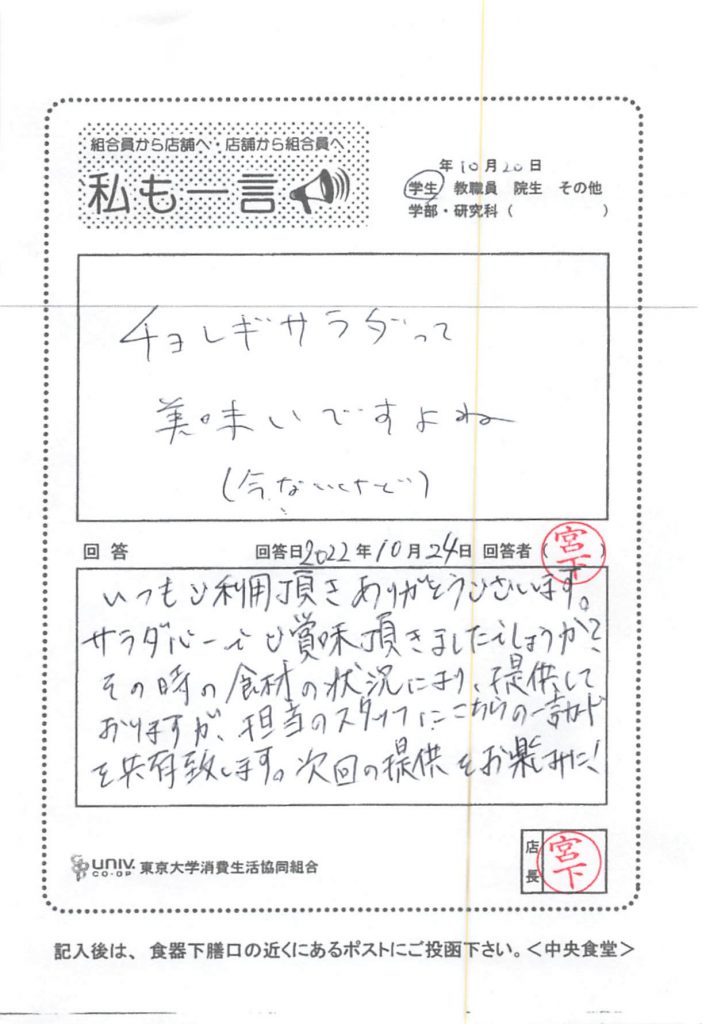 組合員から店舗へ・店舗から組合員へ
私も一言
年10月20日
学生 教職員 院生 その他
学部・研究科（ ）
チョレギサラダって
美味いですよね
(今ないけど)
回答 回答日2022年10月24日 回答者（宮下）
いつもご利用頂きありがとうございます。
サラダバーでご賞味頂きましたでしょうか？
その時の食材の状況により、提供して
おりますが、担当のスタッフにこちらの一言カード
を共有致します。次回の提供をお楽しみに！
店長 宮下
UNIV. CO-OP 東京大学消費生活協同組合
記入後は、食器下膳口の近くにあるポストにご投函下さい。＜中央食堂＞